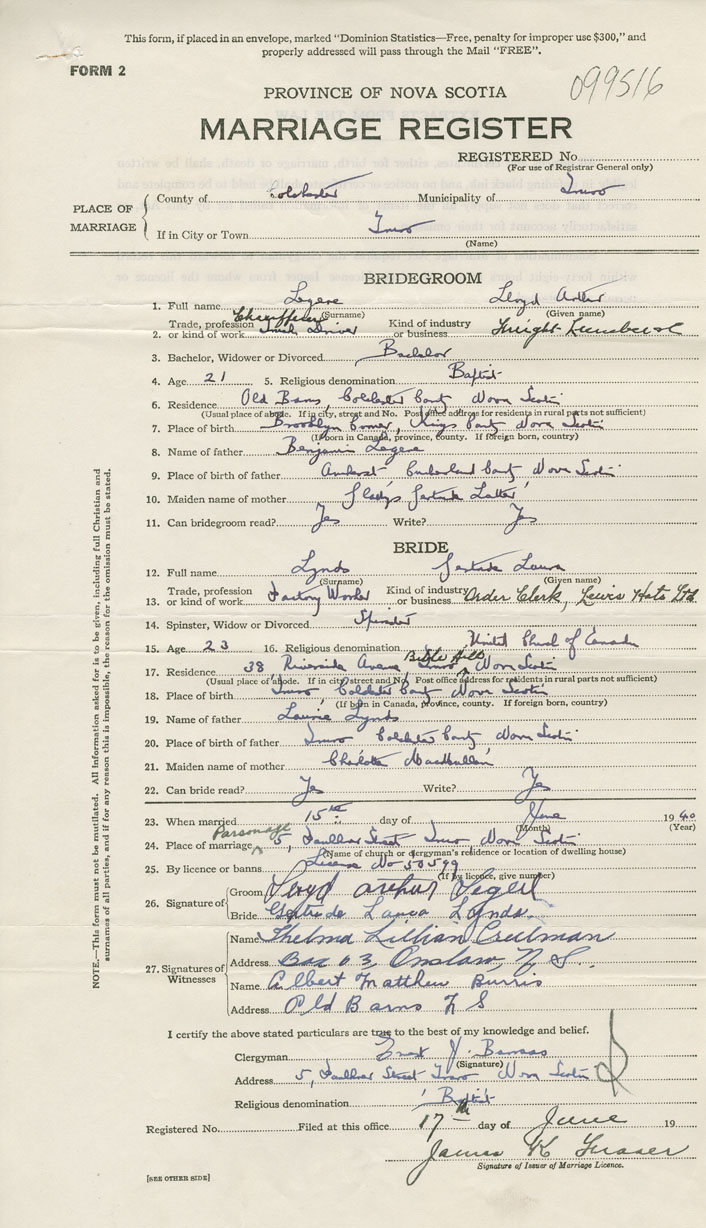 This form, if placed in an envelope, marked "Dominion Statistics—Free, penalty for improper use $300," and
properly addressed will pass through the Mail "FREE".
FORM 2
099516
PROVINCE OF NOVA SCOTIA
MARRIAGE REGISTER
REGISTERED No.
(For use of Registrar General only)
PLACE OF MARRIAGE
County of Colchester Municipality of Truro
If in City or Town Truro
(Name)
BRIDEGROOM
1. Full name Legere Lloyd Arthur
(Surname) (Given name)
Chauffeur
2. Trade, profession or kind of work Truck Driver Kind of industry or business Freight
3. Bachelor, Widower or Divorced Bachelor
4. Age 21 5. Religious denomination Baptist
6. Residence Old Barns, Colchester County Nova Scotia
(Usual place of abode. If in city, street and No. Post office address for residents in rural parts not sufficient)
7. Place of birth Brooklyn Corner, Kings County Nova Scotia
(If born in Canada, province, county. If foreign born, country)
8. Name of father Benjamin Legere
9. Place of birth of father Amherst Cumberland County, Nova Scotia
10. Maiden name of mother Gladys Gertrude
11. Can bridegroom read? Yes Write? Yes
BRIDE
12. Full name Lynds Gertrude Laura
(Surname) (Given name)
13. Trade, profession or kind of work Factory Worker Kind of industry or business Order Clerk, Lewis Hats Ltd.
14. Spinster, Widow or Divorced Spinster
15. Age 23 16. Religious denomination United Church of Canada
Bible Hill
17. Residence 38 Riverside Avenue, Truro, Nova Scotia
(Usual place of abode. If in city street and No. Post office address for residents in rural parts not sufficient)
18. Place of birth Truro Colchester County Nova Scotia
(If born in Canada, province, county. If foreign born, country)
19. Name of father Laurie Lynds
20. Place of birth of father Truro Colchester County Nova Scotia
21. Maiden name of mother Charlotte
22. Can bride read? Yes Write? Yes
23. When married 15th day of June 1940
(Month) (Year)
Parsonage
24. Place of marriage 5, Faulkner Street Truro Nova Scotia
(Name of church or clergyman's residence or location of dwelling house)
25. By licence or banns License No
(If by licence, give number)
26. Signature of
Groom Lloyd Arthur Legere
Bride Gertrude Laura Lynds.
27. Signatures of Witnesses
Name Thelma Lillian
Address Box 63, Onslow, N. S.
Name Albert Matthew Burris
Address Old Barns N S
I certify the above stated particulars are true to the best of my knowledge and belief.
Clergyman
(Signature)
Address 5, Faulkner Street Truro Nova Scotia
Religious denomination Baptist
Registered No. Filed at this office 17th day of June 19
James K Fraser
Signature of Issuer of Marriage Licence.
[SEE OTHER SIDE]
NOTE.—This form must not be mutilated. All Information asked for is to be given, including full Christian and
surnames of all parties, and if for any reason this is impossible, the reason for the omission must be stated.